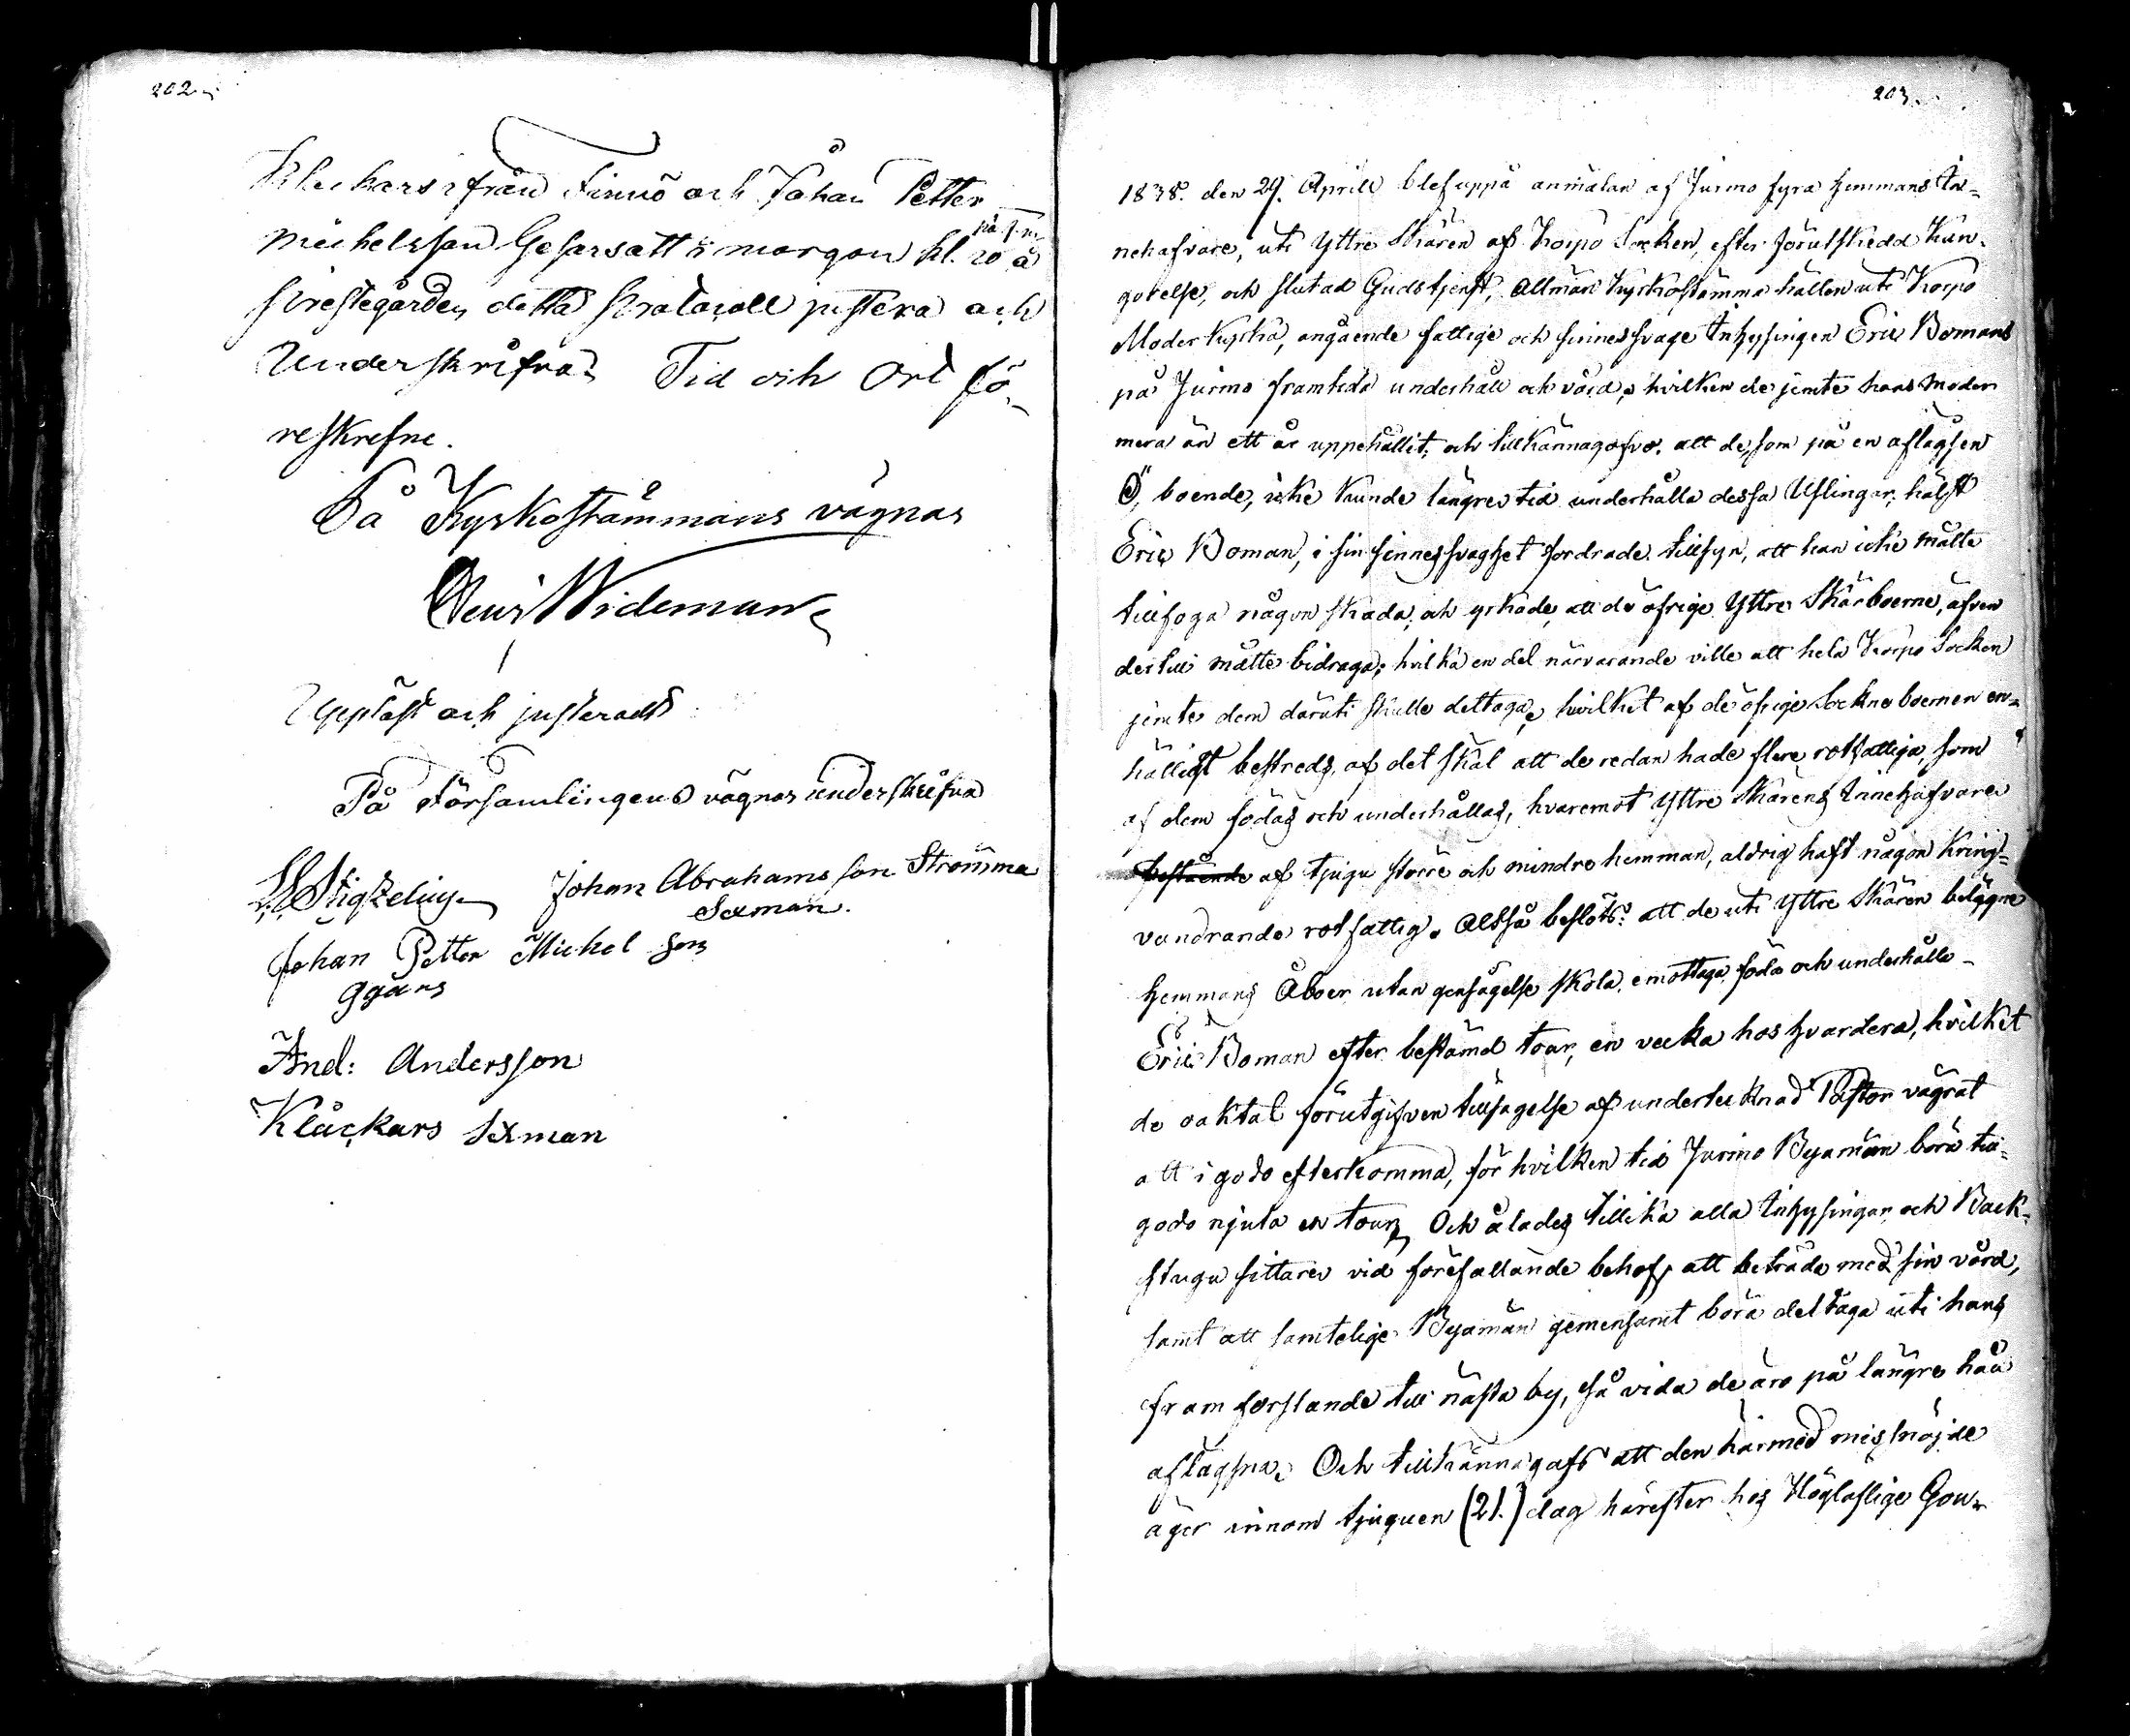 202
Klåckars ifrån Finnö och Johan Petter
Michelsson Gyttja att i morgon kl. 10 på f.m. å
Prestegården detta Protocoll justera och
Underskrifva. Tid och Ort fö-
reskrefne.
På Kyrkostämmans vägnar
Wideman
Uppläst och justeradt
På Församlingens vägnar underskrifva
Stigzelius Johan Abrahamsson Strömma
Sexman.
Johan Petter Michelsson
And: Andersson
Klåckars Sexman
203.
1838. den 29. Aprill blef uppå anmälan af Jurmo fyra Hemmans In-
nehafvare, uti Yttre Skären af Korpo Socken, efter förutskedd Kun-
görelse, och slutad Gudstjenst, Allmän Kyrkostämma hållen uti Korpo
Moder Kyrka, angående fattige och sinnessvage Inhysingen Eric Bomans
på Jurmo framtida underhåll och vård, hvilken de jemte hans Moder
mera än ett år uppehållit, och tillkännagofvo, att de, som på en aflägsen
Ö, boende, icke kunde längre tid underhålla dessa Uslingar, hälst
Eric Boman, i sin sinnessvaghet fordrade tillsyn, att han icke måtte
tillfoga någon skada, och yrkade, att de öfrige Yttre Skärboerne, äfven
dertill måtte bidraga; hvilka en del närvarande ville att hela Korpo Socken
jemte dem däruti skulle deltaga, hvilket af de öfrige Sockneboerne en-
hälligt bestreds, af det skäl att de redan hade flere rotfattiga, som
af dem födas och underhållas, hvaremot Yttre Skärens Innehafvare
bestående af tjugu större och mindre hemman, aldrig haft någon Kring-
vandrande rotfattig. Altså beslöts: att de uti Yttre Skären belägne
Hemmans Åboer utan gensägelse skola emottaga, föda och underhålla
Eric Boman efter bestämd tour, en vecka hos hvardera, hvilket
de oaktat förutgifven tillsägelse af undertecknad Pastor vägrat
att i godo efterkomma, för hvilken tid Jurmo Byamän böra till-
godo njuta en tour. Och ålades tillika alla Inhysingar och Back-
stugu sittare vid förefallande behof, att beträda med sin vård,
samt att samtelige Byamän gemensamt böra deltaga uti hans
framforslande till nästa by, så vida de äro på längre håll
aflägsna. Och tillkännagafs att den härmed misnöjde
äger innom tjuguen (21.) dag härefter hos Högloflige Gou-